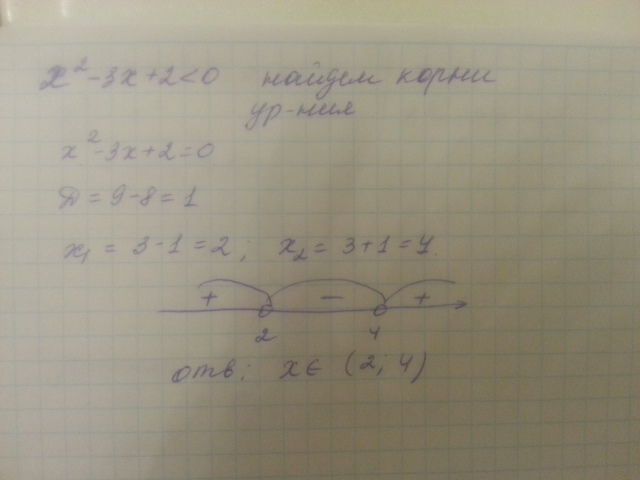 x²-3x+2<0 найдем корни
ур-ния
x²-3x+2=0
D = 9-8 = 1
x₁ = 3-1 = 2; x₂ = 3+1 = 4.
+ - +
2 4
отв: x∈ (2; 4)